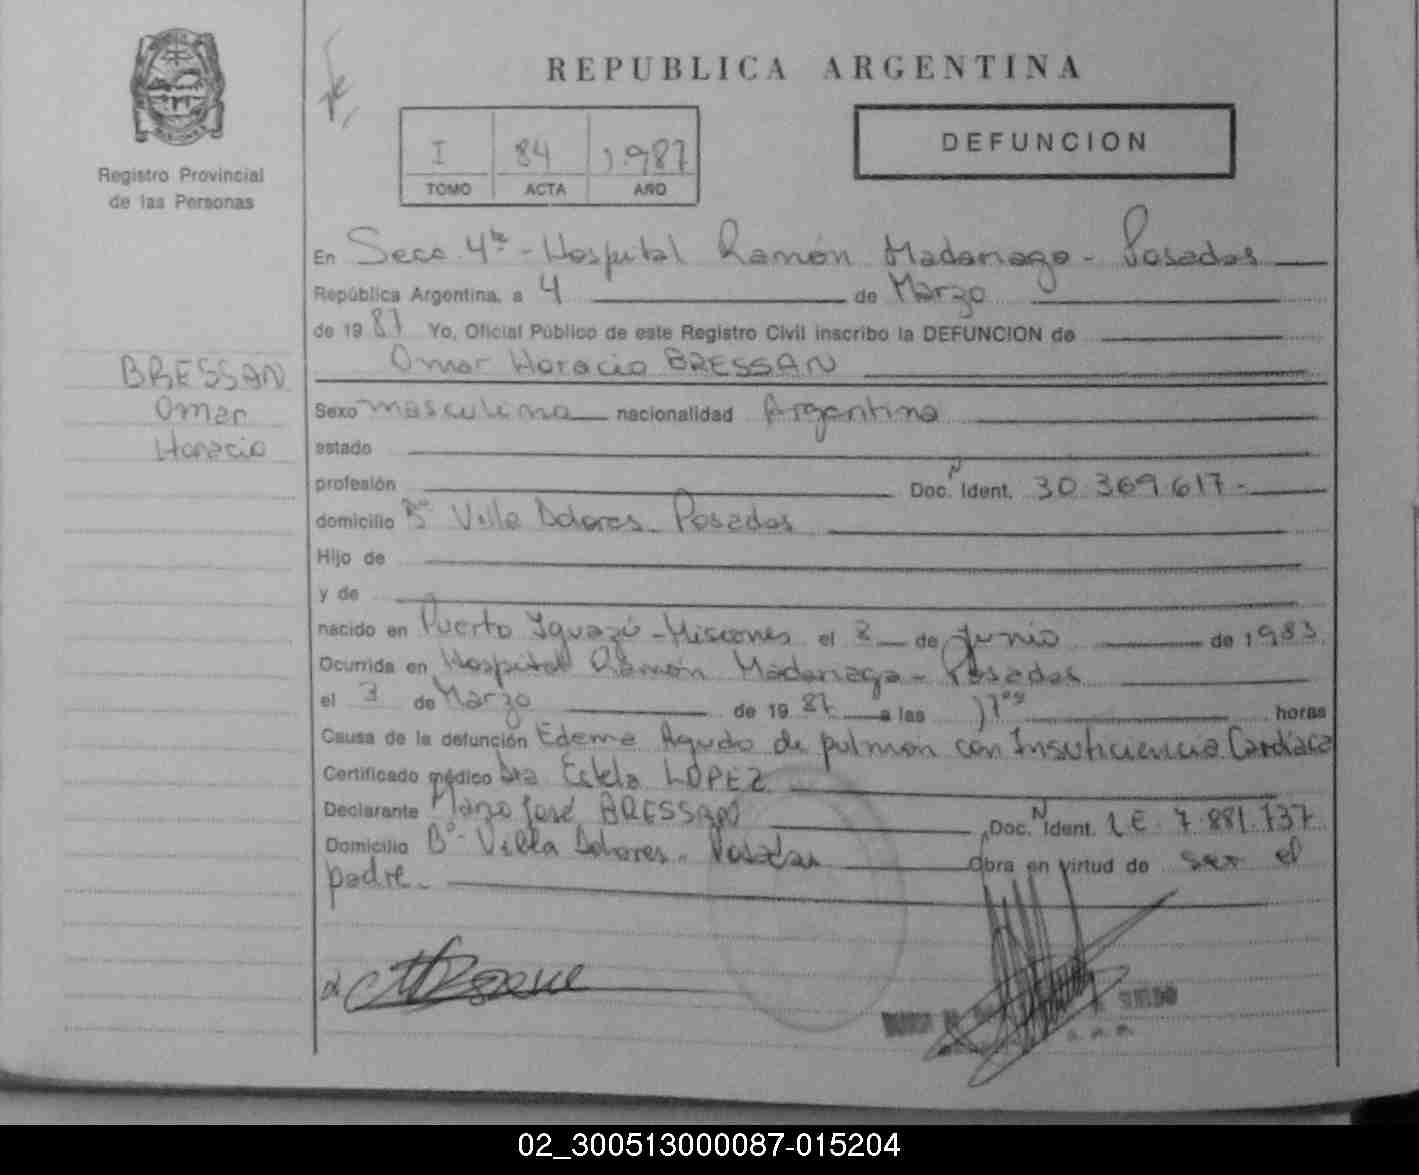 REPUBLICA ARGENTINA
I 84 1.987
TOMO ACTA AÑO
DEFUNCION
Registro Provincial
de las Personas
BRESSAN
Omar
Horacio
En Secc. 4ta - Hospital Ramón Madariaga - Posadas
República Argentina, a 4 de Marzo
de 1987 Yo, Oficial Público de este Registro Civil inscribo la DEFUNCION de
Omar Horacio BRESSAN
Sexo masculino nacionalidad Argentina
estado
profesión Doc. N Ident. 30.369.617-
domicilio Bº Villa Dolores - Posadas
Hijo de
y de
nacido en Puerto Iguazú - Misiones el 2 de Junio de 1983
Ocurrida en Hospital Ramón Madariaga - Posadas
el 3 de Marzo de 1987 a las horas
Causa de la defunción Edema Agudo de pulmón con Insuficiencia Cardíaca
Certificado médico Dra Estela LOPEZ
Declarante José BRESSAN Doc. N Ident. L E. 7.881.737
Domicilio Bº Villa Dolores - Posadas Obra en virtud de ser el
padre.
02_300513000087-015204